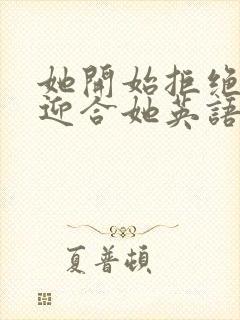 她開始拒绝
迎合她英語
夏普頓